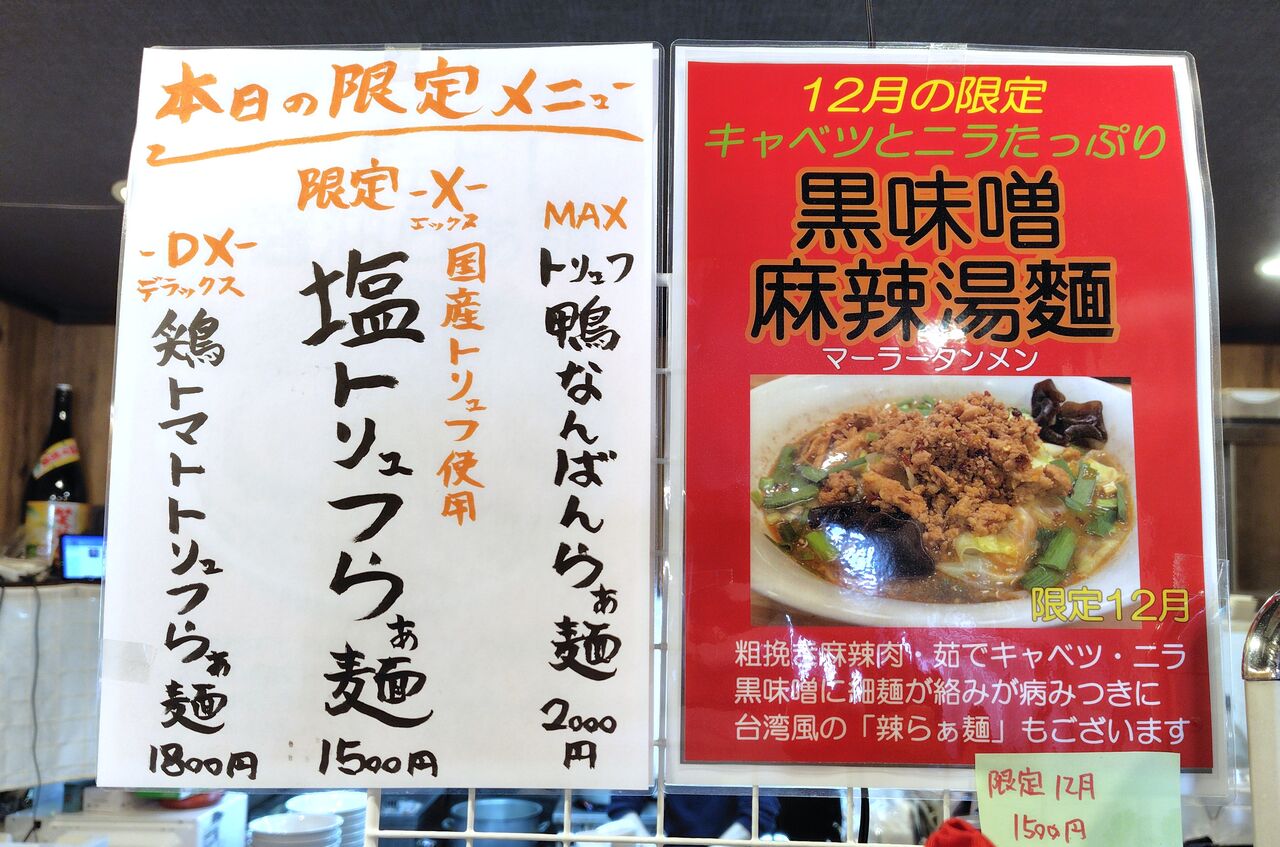 本日の限定メニュー
MAX
トリュフ
鴨なんばんらぁ麺
2000
円
限定 -X-
エックス
国産トリュフ使用
塩トリュフらぁ麺
1500円
-DX-
デラックス
鶏トマトトリュフらぁ麺
1800円
12月の限定
キャベツとニラたっぷり
黒味噌
麻辣湯麺
マーラータンメン
限定12月
粗挽き麻辣肉・茹でキャベツ・ニラ
黒味噌に細麺が絡みが病みつきに
台湾風の「辣らぁ麺」もございます
限定 12月
1500円